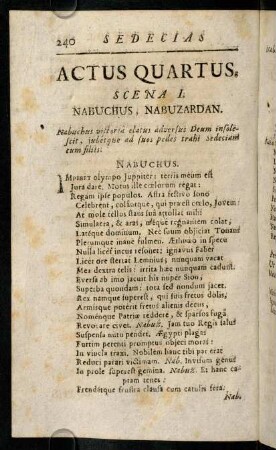 240 SEDECIAS
ACTUS QUARTUS.
SCENA I.
NABUCHUS, NABUZARDAN.
Nabuchus victoriâ elatus adversus Deum insole-
scit, iubetque ad suos pedes trahi Sedeciam
cum filiis.
NABUCHUS.
IMperet olympo Juppiter: terris meum est
Jura dare. Motus ille cœlorum regat:
Regam ipse populos. Astra festivo sono
Celebrent, colántque, qui præest cœlo, Jovem:
At mole tellus stans suâ attollat mihi
Simulacra, & aras, meque regnantem colat,
Latéque dominum. Nec suum objiciat Tonans
Plerumque inane fulmen. Æthnæo in specu
Nulla licet incus resonet; ignavus Faber
Licèt ore stertat Lemnius, nunquam vacat
Mei dextra teli: irrita hæc nunquam cadunt.
Eversa ab imo jacuit his nuper Sion,
Superba quondam: jota sed nondum jacet.
Rex namque superest, qui suis fretus dolis,
Armisque poterit fretus alienis decus,
Noménque Patriæ reddere, & sparsos fugâ
Revocare cives. Nabuz. Jam tuo Regis salus
Suspensa nutu pendet. Ægypti plagas
Furtim petenti promptus objeci moras:
In vincla traxi. Nobilem hanc tibi par erat
Redoti parari victimam. Nab. Invisum genus
In prole superest gemina. Nabuz. Et hanc ca-
ptam tenes:
Frendétque frustra clausa cum catulis fera.
Nab.